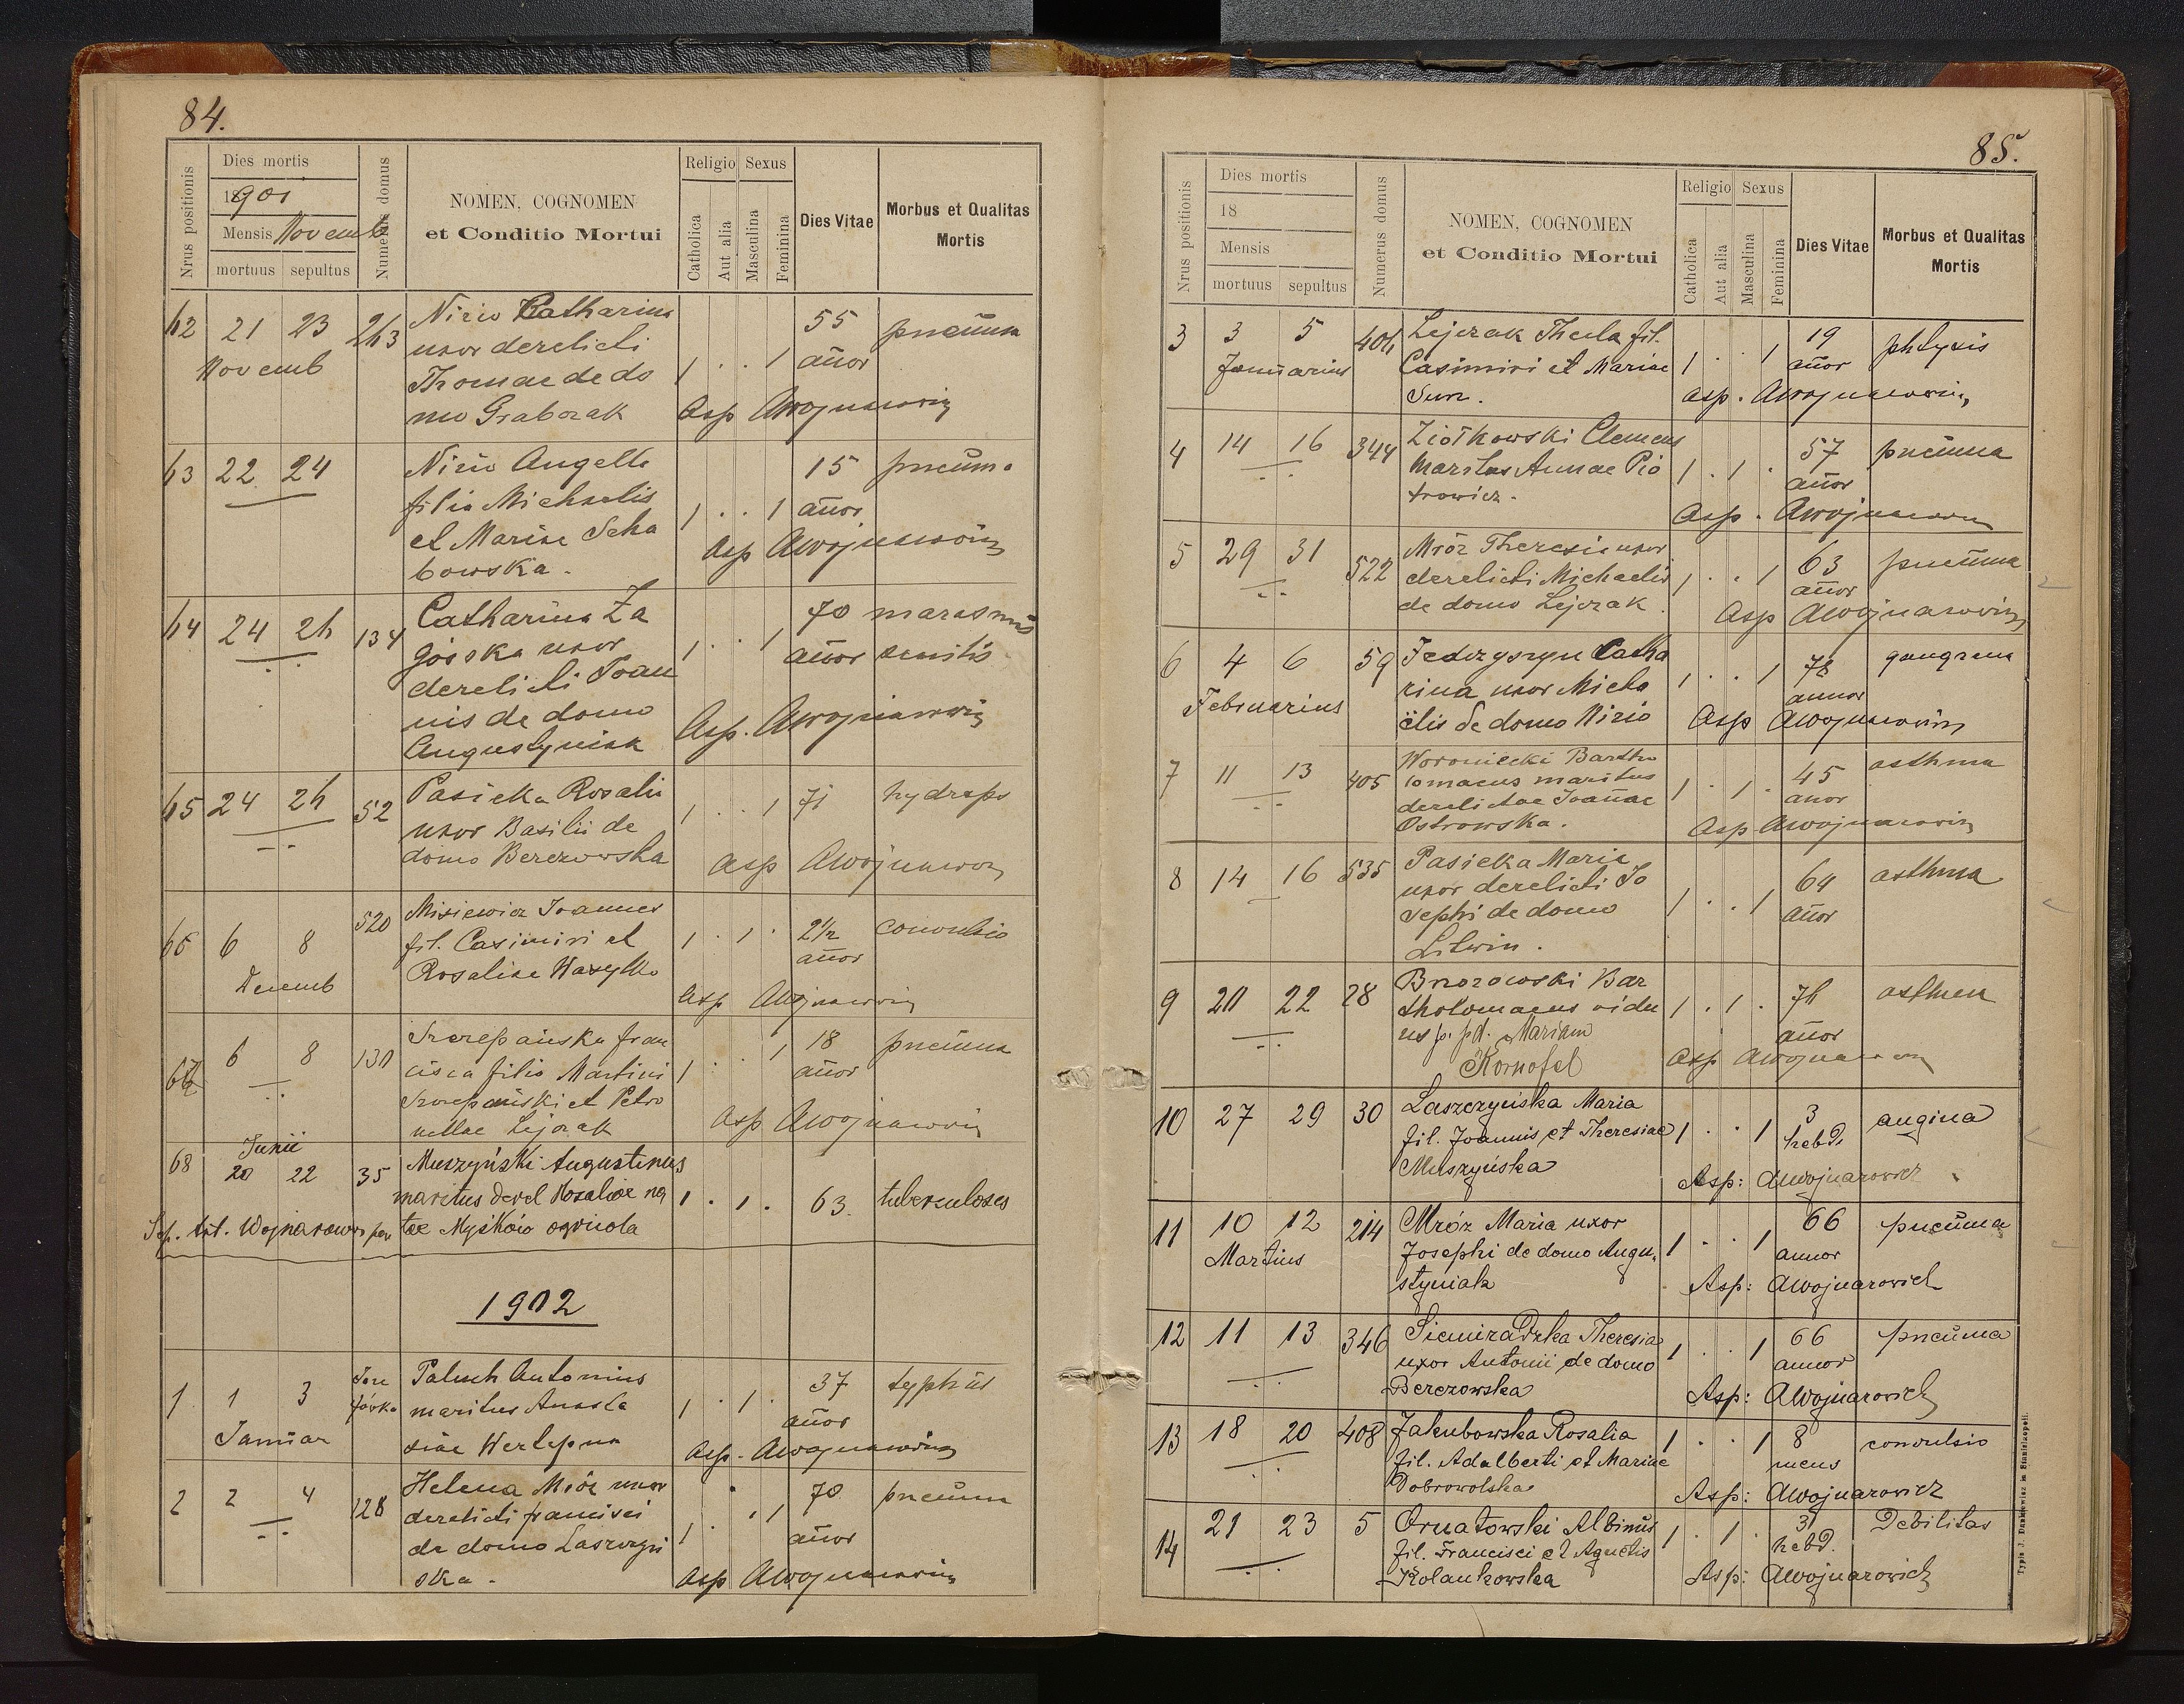 84.
Nrus positionis
Dies mortis
1901
Mensis Novemb
mortuus sepultus
Numerus domus
NOMEN, COGNOMEN
et Conditio Mortui
Religio Sexus
Catholica
Aut alia
Masculina
Feminina
Dies Vitae
Morbus et Qualitas
Mortis
62 21 23 263 Catharina 55 pneuma
Novemb uxor derelicti 1 . . 1 añor
Thomae de do
mo Grabczak Asp AWojnarowicz
63 22 24 Angella 15 pneum.
filia Michaelis 1 . . 1 añor
et Mariae Scha Asp AWojnarowicz
bowska.
64 24 26 134 Catharina Za 70 marasmus
górska uxor 1 . . 1 añor senilis
derelicti Joan
nis de domo Asp. AWojnarowicz
Augustyniak
65 24 26 52 Pasieka Rosalia 1 . . 1 71 hydrops
uxor Basilii de
domo Berezowska Asp AWojnarowicz
66 6 8 520 Misiewicz Joannes 1 . 1 . 2 1/2 convulsio
Decemb fil. Casimiri et añor
Rosaliae Wasylko
Asp AWojnarowicz
67 6 8 130 Szczepańska Fran 1 . . 1 18 pneuma
cisca filia Martini añor
Szczepański et Petro
nellae Lejczak Asp AWojnarowicz
Junii
68 20 22 35 Muszyński Augustinus
maritus derel Rosaliae na 1 . 1 . 63. tuberculoses
Sep. Ant. Wojnarowicz par tae Myśków agricola
1902
1 1 3 Joze Paluch Antonius 1 . 1 . 37 typhus
Januar fówka maritus Anasta añor
siae Werlepna Asp. AWojnarowicz
2 2 4 128 Helena Mróz uxor 1 . . 1 70 pneuma
derelicti Francisci añor
de domo Laszczyń
ska. Asp AWojnarowicz
85.
Nrus positionis
Dies mortis
18
Mensis
mortuus sepultus
Numerus domus
NOMEN, COGNOMEN
et Conditio Mortui
Religio Sexus
Catholica
Aut alia
Masculina
Feminina
Dies Vitae
Morbus et Qualitas
Mortis
3 3 5 Lejczak Thecla fil. 19 phtysis
Januarius Casimiri et Mariae 1 . . 1 añor
Asp. AWojnarowicz
4 14 16 344 Ziółkowski Clemens 57 pneuma
maritus Annae Pio 1 . 1 . añor
trowicz. Asp. AWojnarowicz
5 29 31 522 Mróz Theresia uxor 63 pneuma
derelicti Michaelis 1 . . 1 añor
de domo Lejczak. Asp AWojnarowicz
6 4 6 59 Fedzyszyn Catha 1 . . 1 gangrena
Februarius rina uxor Micha annor
ëlis de domo Asp AWojnarowicz
7 11 13 405 Woroniecki Bartho 1 . 1 . 45 asthma
lomaeus maritus añor
derelictae Joañae
Ostrowska. Asp AWojnarowicz
8 14 16 535 Pasieka Maria 64 asthma
uxor derelicti Jo 1 . . 1 añor
sephi de domo
Litwin.
9 20 22 28 Brzozowski Bar 1 . 1 . 76 asthma
tholomaeus vidu añor
us p. pd. Mariam
Kornofel Asp AWojnarowicz
10 27 29 30 Laszczyńska Maria 3 angina
fil. Joannis et Theresiae 1 . . 1 hebd.
Muszyńska Asp: AWojnarowicz
11 10 12 214 Mróz Maria uxor 66 pneuma
Martius Josephi de domo Augu- 1 . . 1 annor
styniak Asp: AWojnarowicz
12 11 13 346 Siemiradzka Theresia 1 . . 1 66 pneuma
uxor Antonii de domo annor
Berezowska Asp: AWojnarowicz
13 18 20 408 Jakubowska Rosalia 1 . . 1 8 convulsio
fil. Adalberti et Mariae mens
Dobrowolska Asp: AWojnarowicz
14 21 23 5 Ornatowski Albinus 1 . 1 . 3 Debilitas
fil. Francisci et Agnetis hebd.
Kolankowska Asp: AWojnarowicz
Typis J. Dankiewicz in Stanislaopoli.